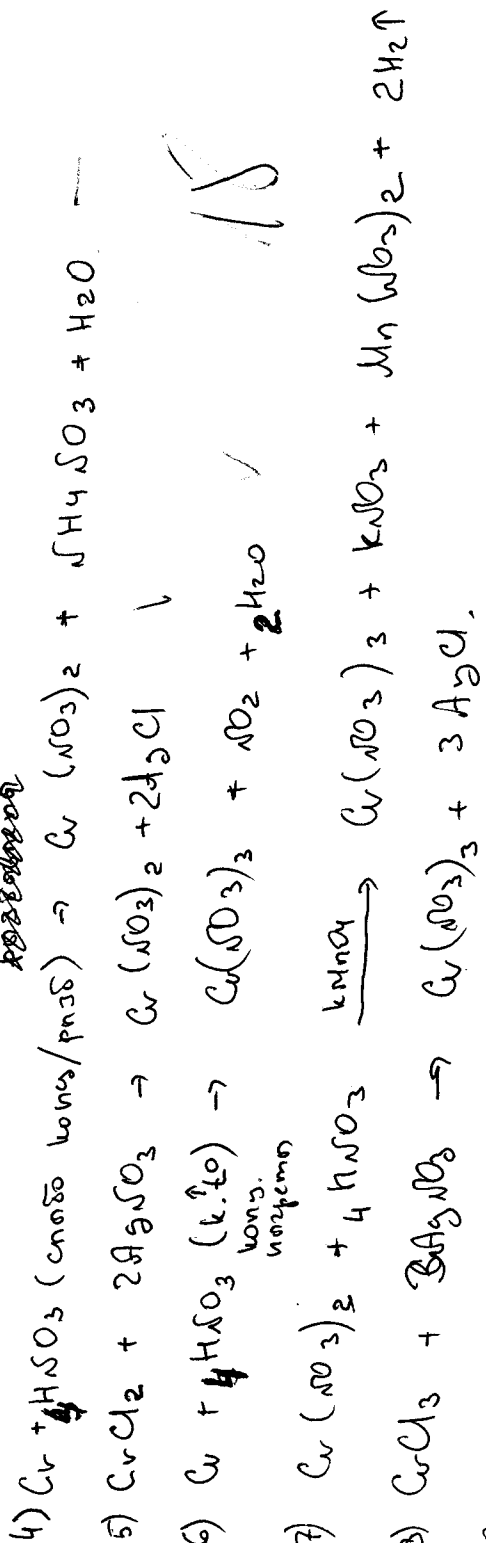 4) Cr + 4HNO3 (слабо конц/разб) → Cr (NO3)2 + NH4NO3 + H2O —
5) CrCl2 + 2AgNO3 → Cr (NO3)2 + 2AgCl
6) Cr + 4HNO3 (к. t0) → Cr(NO3)3 + NO2 + 2H2O
конц.
7) Cr (NO3)2 + 4HNO3 KMnO4 → Cr(NO3)3 + KNO3 + Mn(NO3)2 + 2H2↑
8) CrCl3 + 3AgNO3 → Cr(NO3)3 + 3AgCl.